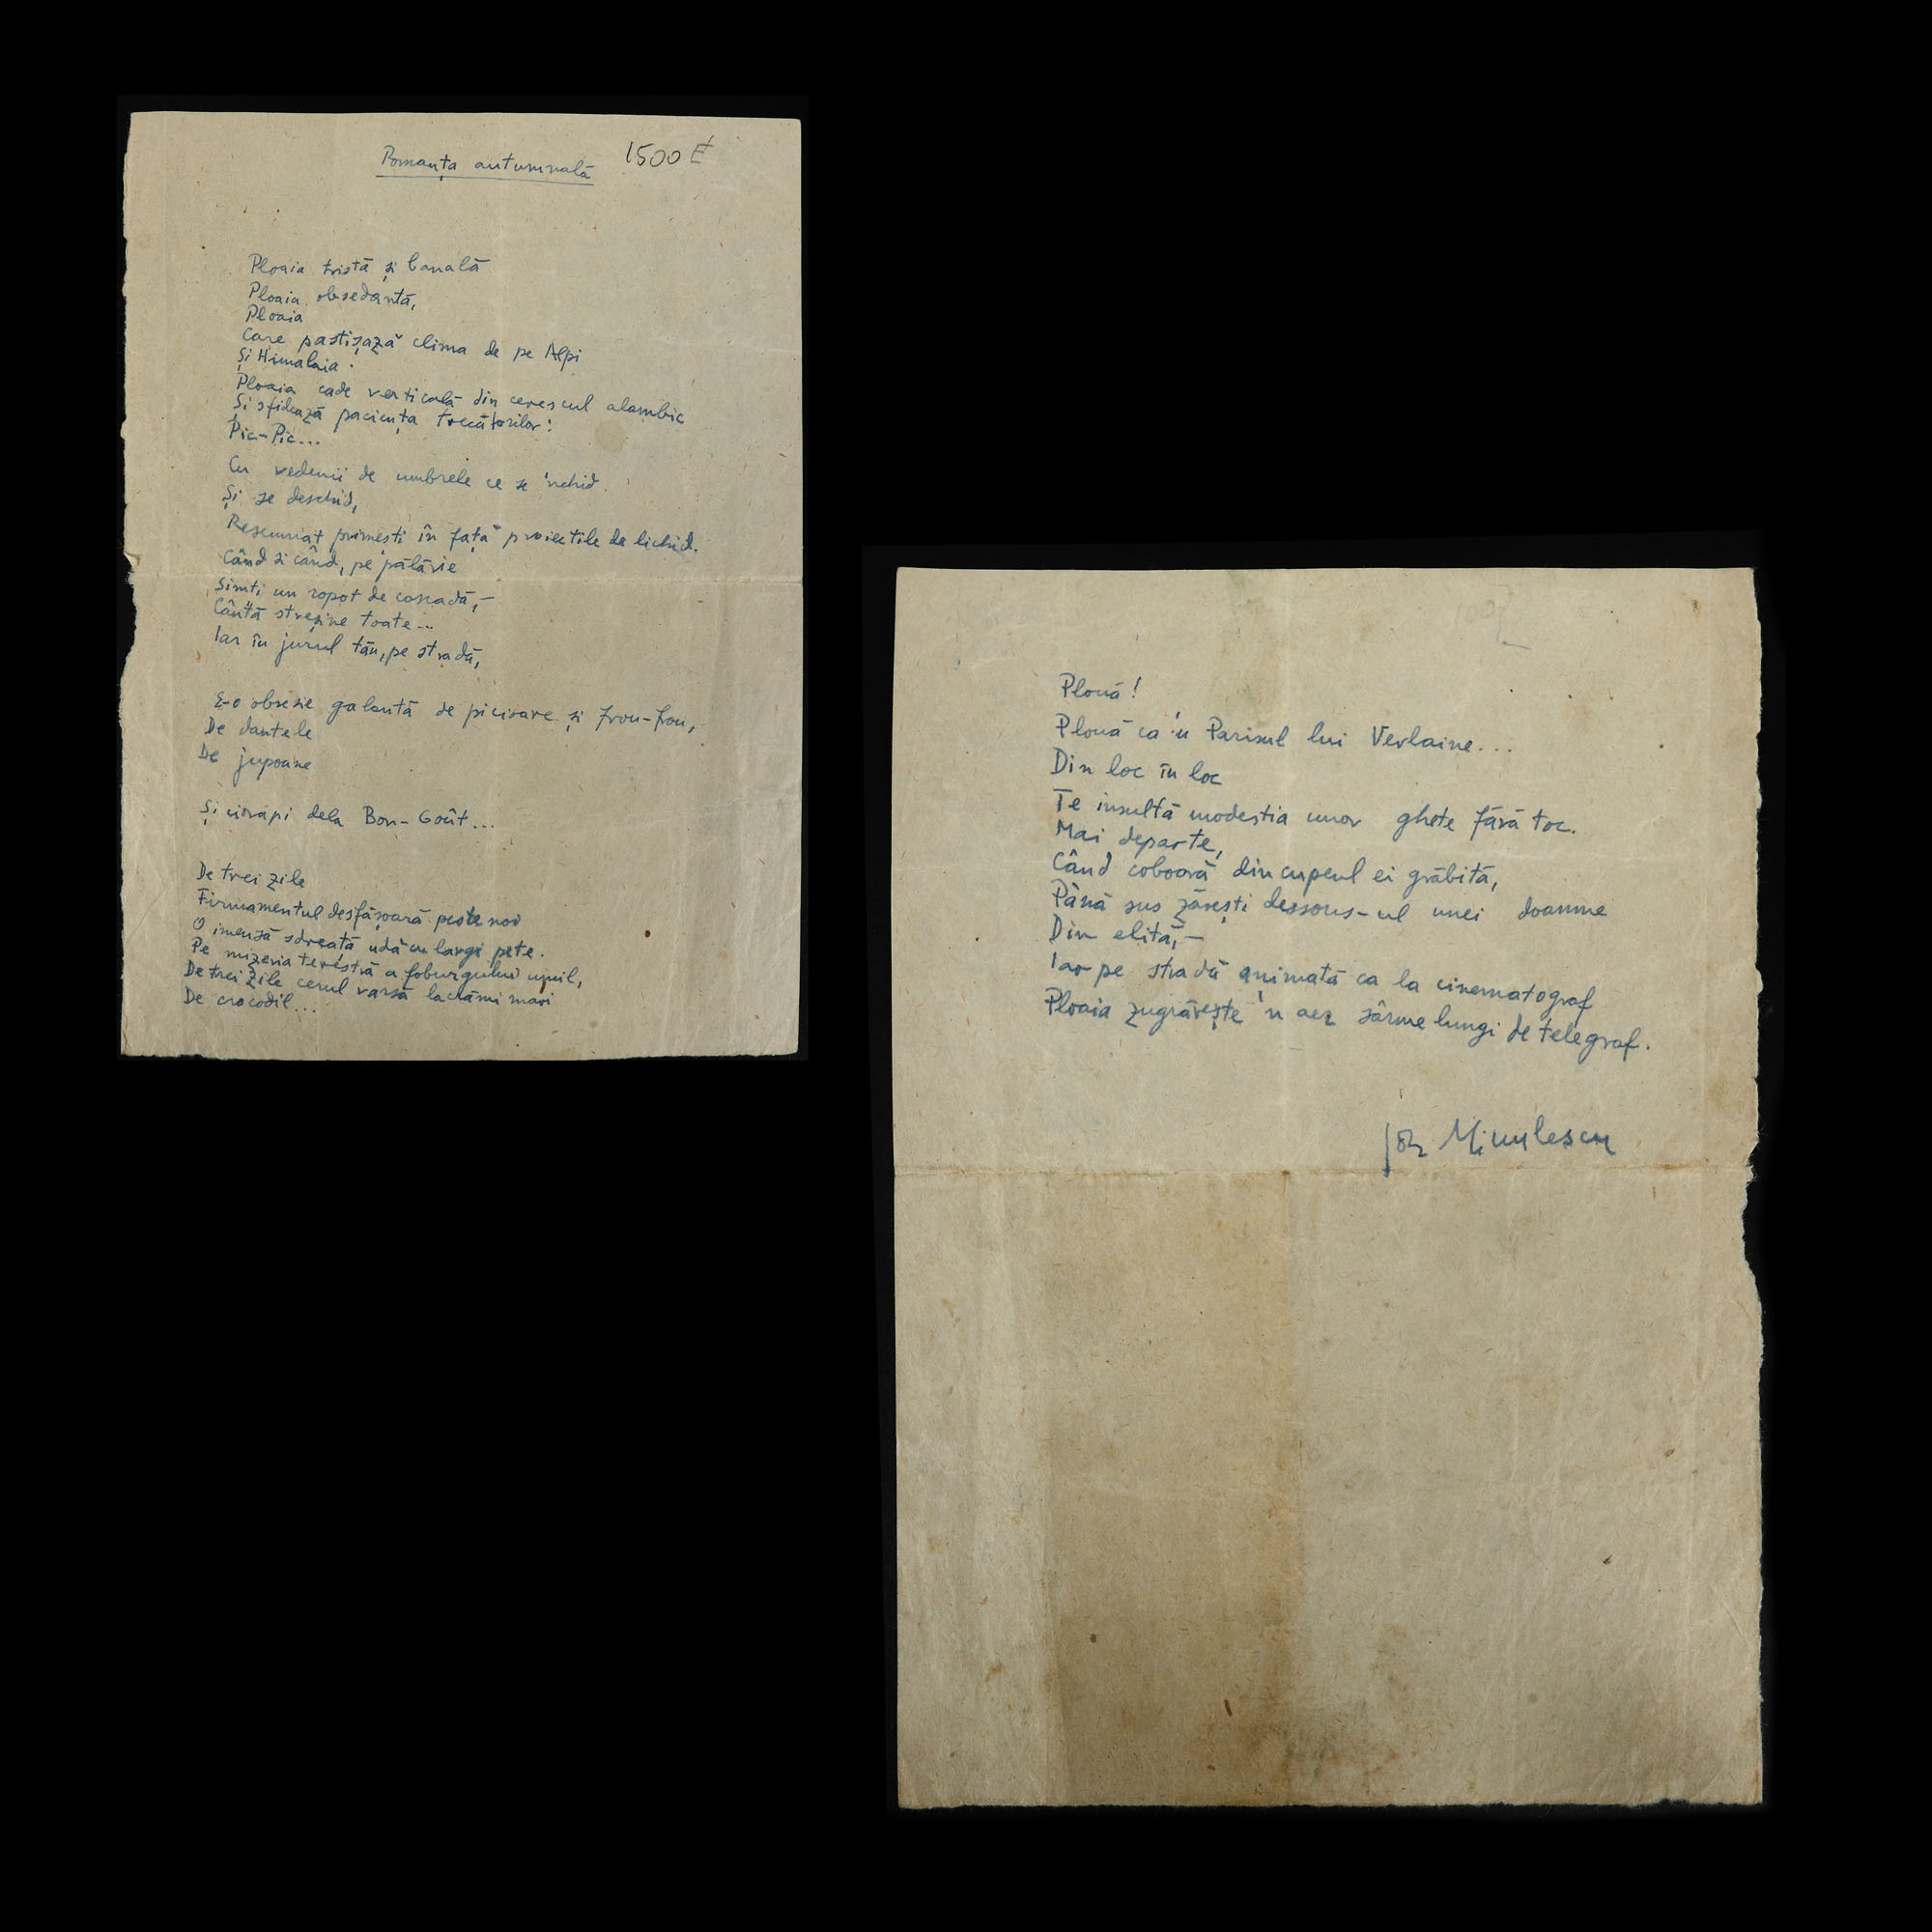 Romanța autumnală
1500 £
Ploaia tristă și banală
Ploaia obsedantă,
Ploaia
Care pastișază clima de pe Alpi
Și Himalaia.
Ploaia cade verticală din cerescul alambic
Și sfidează paciența trecătorilor:
Pic-Pic...
Cu vedenii de umbrele ce se 'nchid
Și se deschid,
Resemnat primești în față proiectile de lichid.
Când și când, pe pălărie
Simți un ropot de cascadă,—
Cântă streșine toate...
Iar în jurul tău, pe stradă,
E-o obsesie galantă de picioare și frou-frou,
De dantele
De jupoane
Și ciorapi dela Bon-Goût...
De trei zile
Firmamentul desfășoară peste noi
O imensă sdreață udă cu largi pete.
Pe mizeria terestră a foburgului umil,
De trei zile cerul varsă lacrămi mari
De crocodil...
Plouă!
Plouă ca 'n Parisul lui Verlaine...
Din loc în loc
Te insultă modestia unor ghete fără toc.
Mai departe,
Când coboară din cupeul ei grăbită,
Până sus zărești dessous-ul unei doamne
Din elită,—
Iar pe stradă animată ca la cinematograf
Ploaia zugrăvește 'n aer sârme lungi de telegraf.
Ion Minulescu